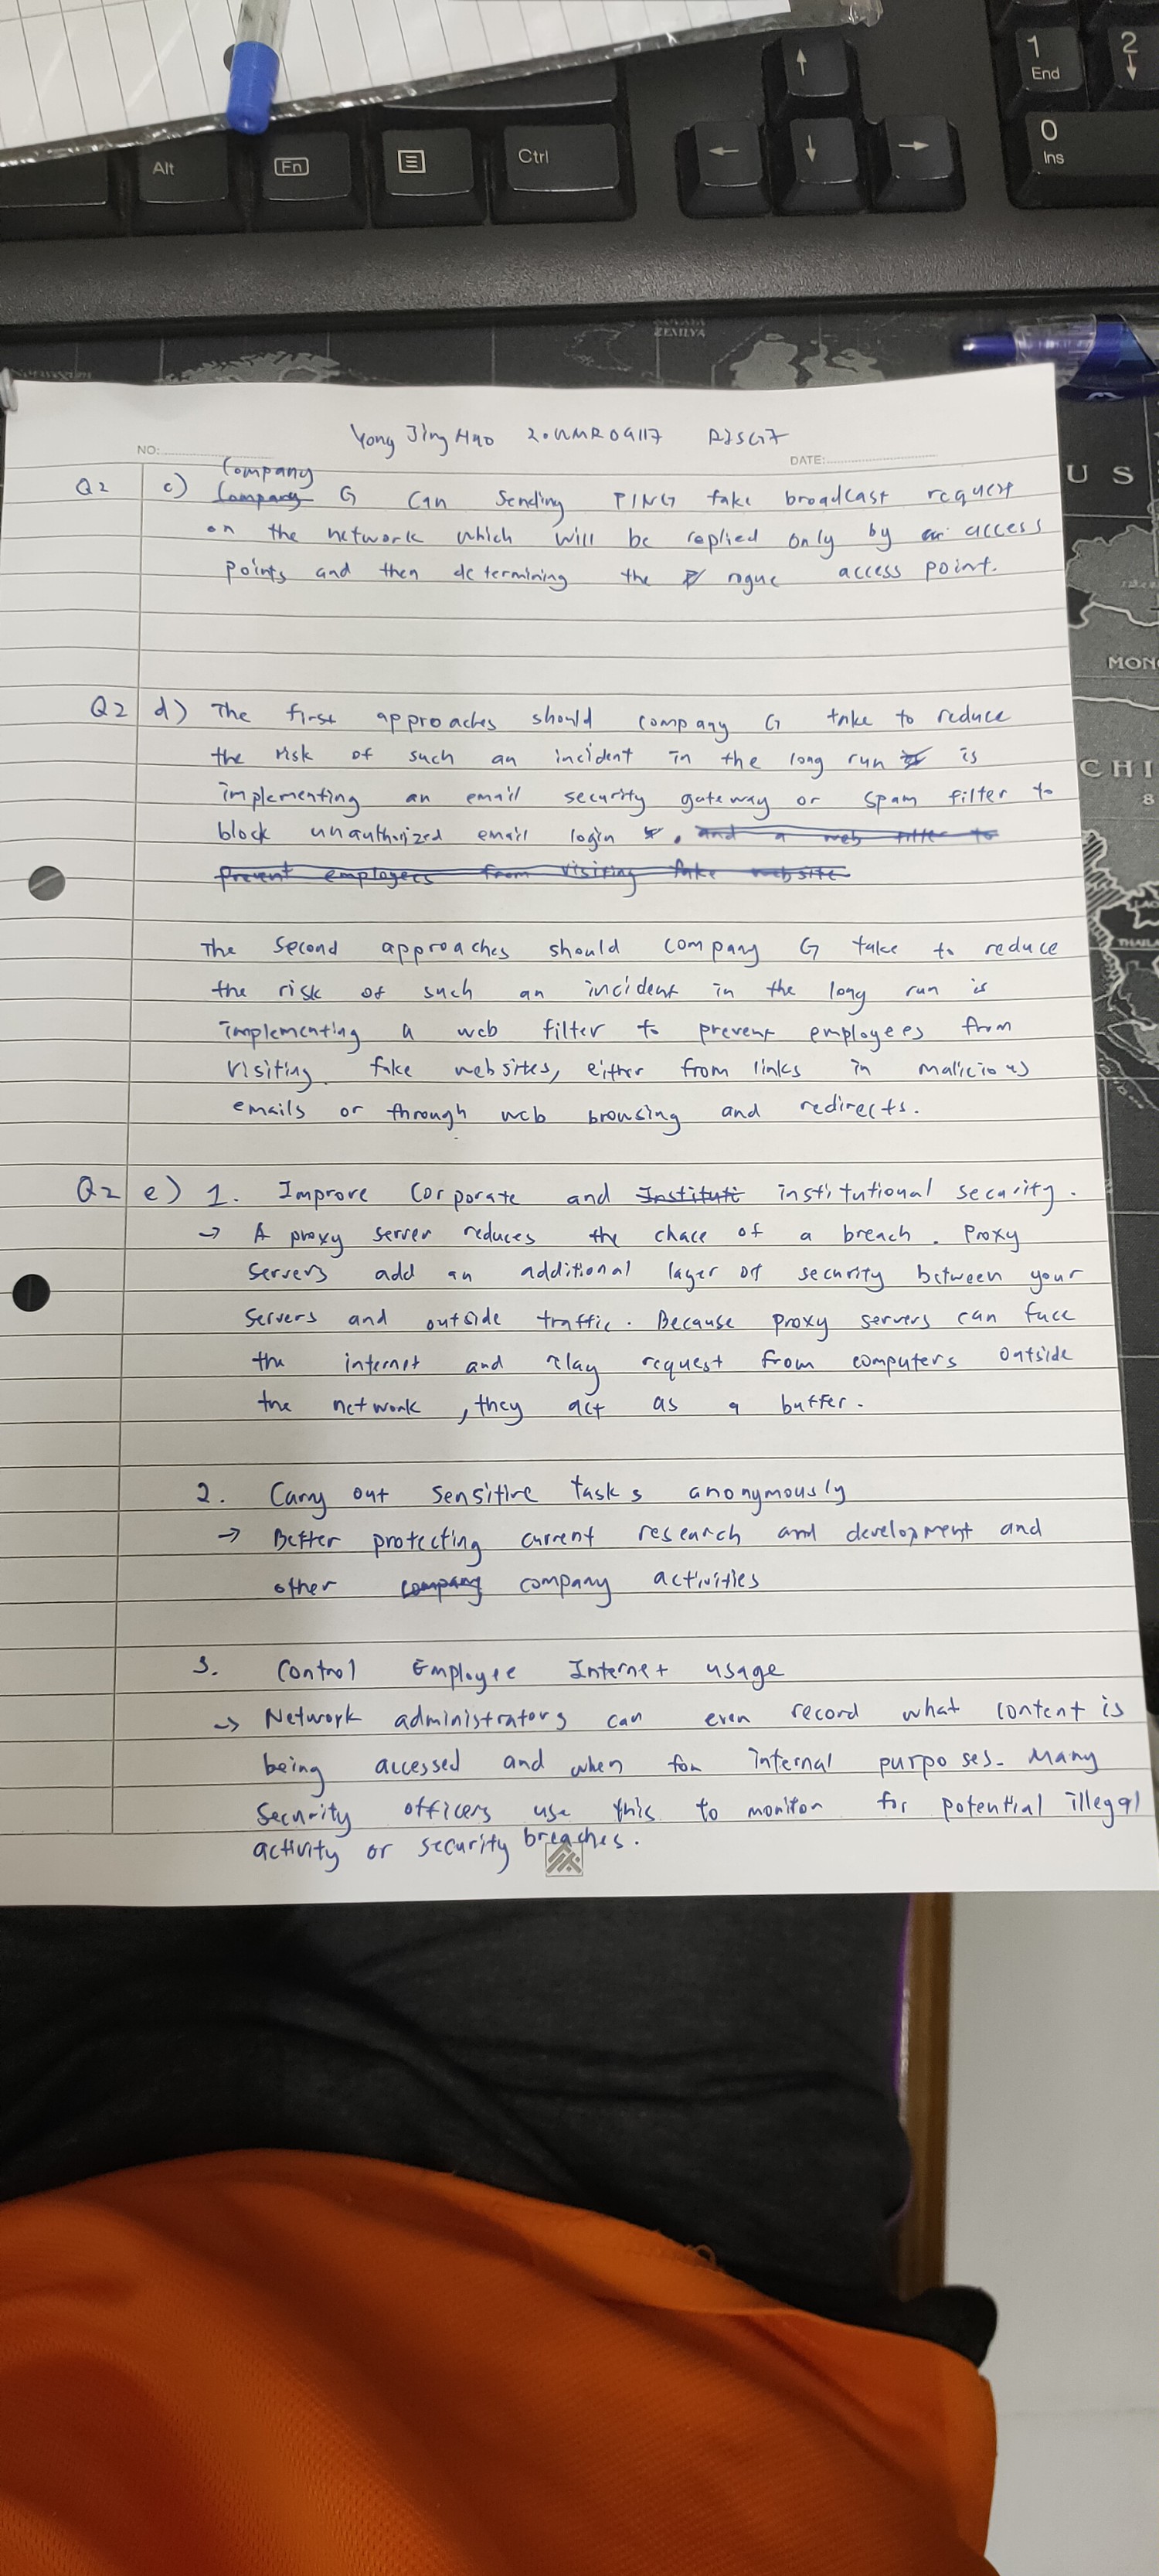 Alt
Fn
Ctrl
1
End
2
0
Ins
ZEMLYA
Yong Jing Hao
NO:
DATE:
U S
Company
Q2 c) Company G can sending PING fake broadcast request
on the network which will be replied only by access
points and then determining the rogue access point.
MON
Q2 d) The first approaches should company G take to reduce
the risk of such an incident in the long run is
CHI
implementing an email security gateway or spam filter to
8
block unauthorized email login . and a web filter to
prevent employers from visiting fake website
THAILA
The second approaches should company G take to reduce
the risk of such an incident in the long run is
implementing a web filter to prevent employees from
visiting fake websites, either from links in malicious
emails or through web browsing and redirects.
Q2 e) 1. Improve corporate and Instituti institutional security.
→ A proxy server reduces the chace of a breach. Proxy
servers add an additional layer of security between your
servers and outside traffic. Because proxy servers can face
the internet and relay request from computers outside
the network, they act as a buffer.
2. Carry out sensitive tasks anonymously
→ Better protecting current research and development and
other company company activities
3. Control Employee Internet usage
→ Network administrators can even record what content is
being accessed and when for internal purposes. Many
security officers use this to monitor for potential illegal
activity or security breaches.